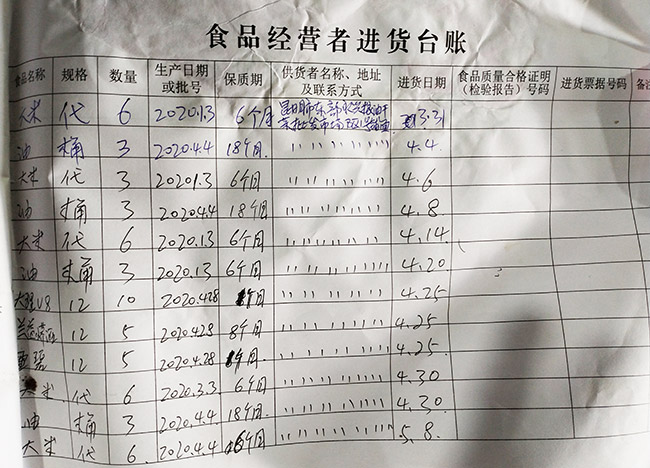 食品经营者进货台账
食品名称 规格 数量 生产日期或批号 保质期 供货者名称、地址及联系方式 进货日期 食品质量合格证明（检验报告）号码 进货票据号码 备注
大米 代 6 2020.1.3 6个月 3.31
油 桶 3 2020.4.4 18个月. 〃 〃 〃 〃 〃 4.4
大米 代 3 2020.1.3 6个月 〃 〃 〃 〃 〃 4.6
油 桶 3 2020.4.4 18个月 〃 〃 〃 〃 〃 4.8
大米 代 6 2020.1.3 6个月. 〃 〃 〃 〃 〃 4.14
油 桶 3 2020.1.3 6个月. 〃 〃 〃 〃 〃 4.20
12 10 2020.4.28 个月 〃 〃 〃 〃 〃 4.25
12 5 2020.4.28 8个月 〃 〃 〃 〃 〃 4.25
12 5 2020.4.28 个月. 〃 〃 〃 〃 〃 4.25
大米 代 6 2020.3.3 6个月 〃 〃 〃 〃 〃 4.30
油 桶 3 2020.4.4 18个月. 〃 〃 〃 〃 〃 4.30
大米 代 6 2020.4.4 6个月 〃 〃 〃 〃 〃 5.8.